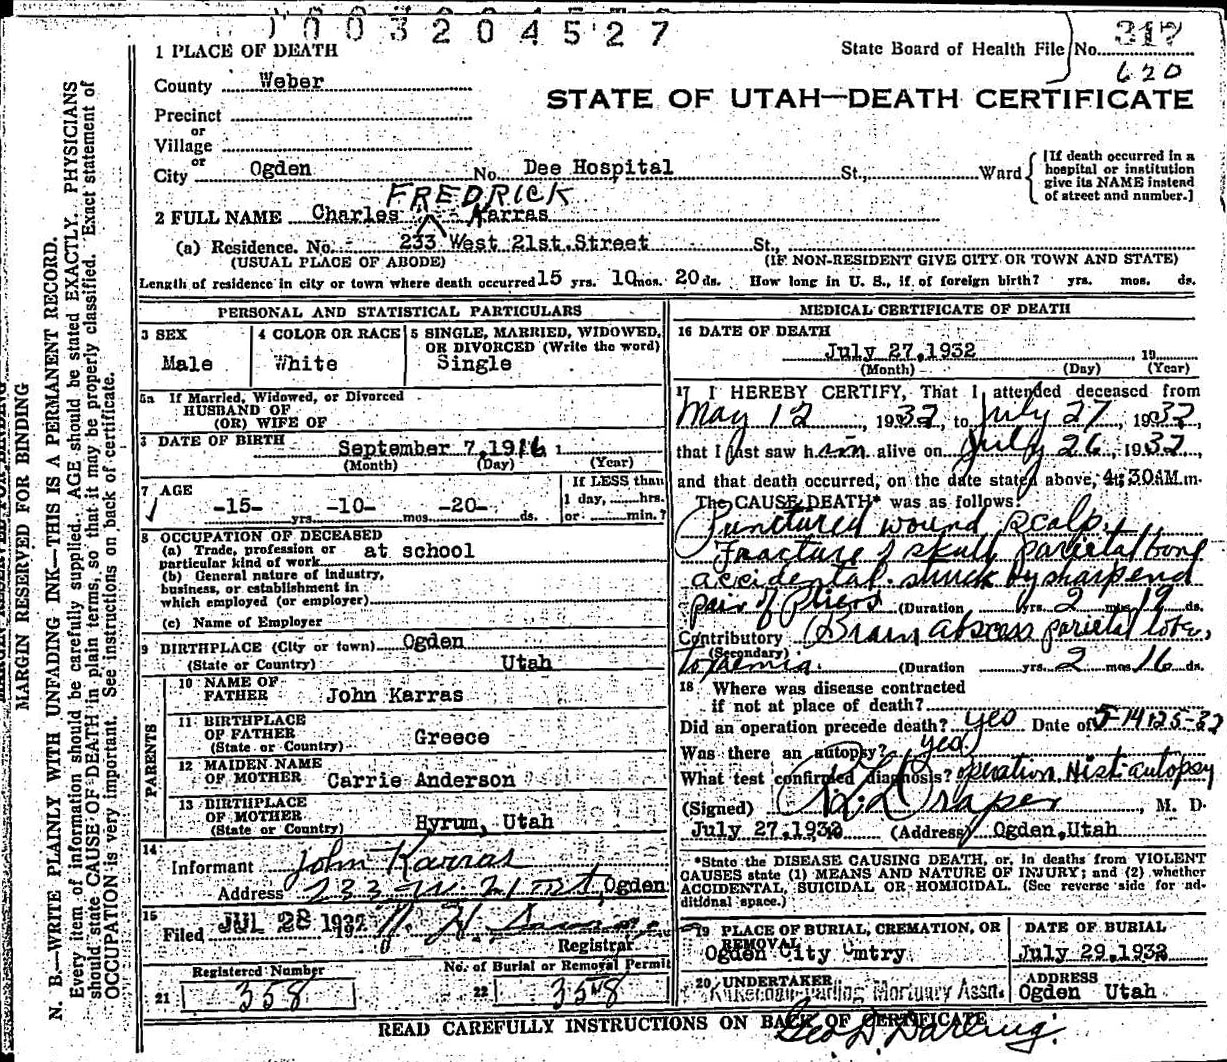 003204527
1 PLACE OF DEATH
State Board of Health File No. 317
620
County Weber
STATE OF UTAH—DEATH CERTIFICATE
Precinct
or
Village
or
City Ogden No. Dee Hospital St., Ward
[If death occurred in a hospital or institution give its NAME instead of street and number.]
FREDRICK
2 FULL NAME Charles Karras
(a) Residence. No. 233 West 21st.Street St.,
(USUAL PLACE OF ABODE) (IF NON-RESIDENT GIVE CITY OR TOWN AND STATE)
Length of residence in city or town where death occurred 15 yrs. 10 mos. 20 ds. How long in U. S., if of foreign birth? yrs. mos. ds.
PERSONAL AND STATISTICAL PARTICULARS
3 SEX
Male
4 COLOR OR RACE
White
5 SINGLE, MARRIED, WIDOWED, OR DIVORCED (Write the word)
Single
5a If Married, Widowed, or Divorced
HUSBAND OF
(OR) WIFE OF
DATE OF BIRTH September 7,1916
(Month) (Day) (Year)
7 AGE
-15- yrs. -10- mos. -20- ds.
If LESS than
1 day, hrs.
or min.?
8 OCCUPATION OF DECEASED
(a) Trade, profession or particular kind of work at school
(b) General nature of industry, business, or establishment in which employed (or employer)
(c) Name of Employer
9 BIRTHPLACE (City or town) Ogden
(State or Country) Utah
PARENTS
10 NAME OF FATHER John Karras
11 BIRTHPLACE OF FATHER (State or Country) Greece
12 MAIDEN NAME OF MOTHER Carrie Anderson
13 BIRTHPLACE OF MOTHER (State or Country) Hyrum, Utah
14
Informant John Karras
Address 233 W. 21 st, Ogden
15
Filed JUL 28 1932
Registrar
Registered Number
21 358
No. of Burial or Removal Permit
22 358
MEDICAL CERTIFICATE OF DEATH
16 DATE OF DEATH
July 27,1932 19
(Month) (Day) (Year)
17 I HEREBY CERTIFY, That I attended deceased from
May 12, 1932, to July 27, 1932
that I last saw him alive on July 26, 1932,
and that death occurred, on the date stated above, 4:30AM.m.
The CAUSE DEATH* was as follows
Punctured wound scalp.
Fracture of skull parietal bone
accidental. struck by sharp end
pair of pliers (Duration yrs. 2 mos. ds.
Contributory Brain abscess parietal lobe,
(Secondary)
toxaemia. (Duration yrs. 2 mos. 16 ds.
18 Where was disease contracted
if not at place of death?
Did an operation precede death? yes Date of
Was there an autopsy? yes
What test confirmed diagnosis? operation, Hist. autopsy
(Signed) Draper, M. D.
July 27,1932 (Address) Ogden,Utah
*State the DISEASE CAUSING DEATH, or, in deaths from VIOLENT CAUSES state (1) MEANS AND NATURE OF INJURY; and (2) whether ACCIDENTAL, SUICIDAL OR HOMICIDAL. (See reverse side for additional space.)
19 PLACE OF BURIAL, CREMATION, OR REMOVAL
Ogden City Cmtry
DATE OF BURIAL
July 29,1932
20 UNDERTAKER
Mortuary Assn.
ADDRESS
Ogden Utah
Geo D. Darling.
READ CAREFULLY INSTRUCTIONS ON BACK OF CERTIFICATE
MARGIN RESERVED FOR BINDING
N. B.—WRITE PLAINLY WITH UNFADING INK—THIS IS A PERMANENT RECORD.
Every item of information should be carefully supplied. AGE should be stated EXACTLY. PHYSICIANS
should state CAUSE OF DEATH in plain terms, so that it may be properly classified. Exact statement of
OCCUPATION is very important. See instructions on back of certificate.